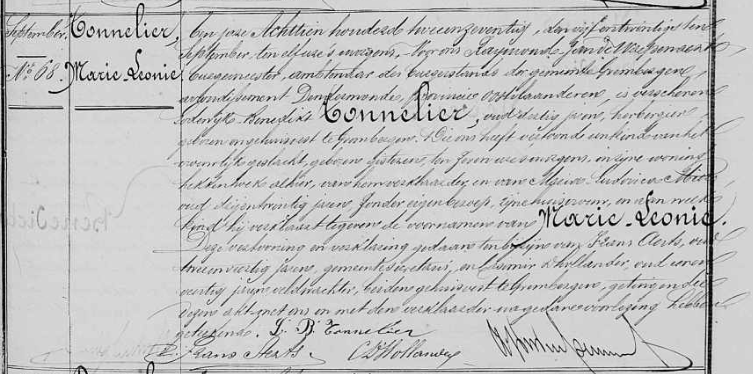 September.
Nº 68.
Tonnelier,
Marie Leonie
Ten jare Achttien honderd tweeenzeventig, den vijfentwintigsten
September, ten elf ure 's morgens, Voor ons Raymond
Burgemeester, ambtenaar des burgerstands der gemeente Grembergen,
arrondissement Dendermonde, Provincie Oostvlaanderen, is verschenen
Lodewijk Benedikt Tonnelier, oud dertig jaren, herbergier,
geboren en gehuisvest te Grembergen. Die ons heeft vertoond een kind van het
vrouwelijk geslacht, geboren gisteren, ten zeven ure 's morgens, in zijne woning
alhier, van hem verklaarder en van Maria Ludovica
oud zesentwintig jaren, zonder eigen beroep, zijne huisvrouw, en aan welk
kind hij verklaart te geven de voornamen van Marie-Leonie.
Deze vertooning en verklaring gedaan ten bijzijn van Frans Aerts, oud
tweeenveertig jaren, gemeentesecretaris, en Casimir D'hollander, oud eenen
veertig jaren, veldwachter, beiden gehuisvest te Grembergen, getuigen die
dezen akt met ons en met den verklaarder na gedane voorlezing hebben
geteekend. L. B. Tonnelier
Frans Aerts. C. D'Hollander